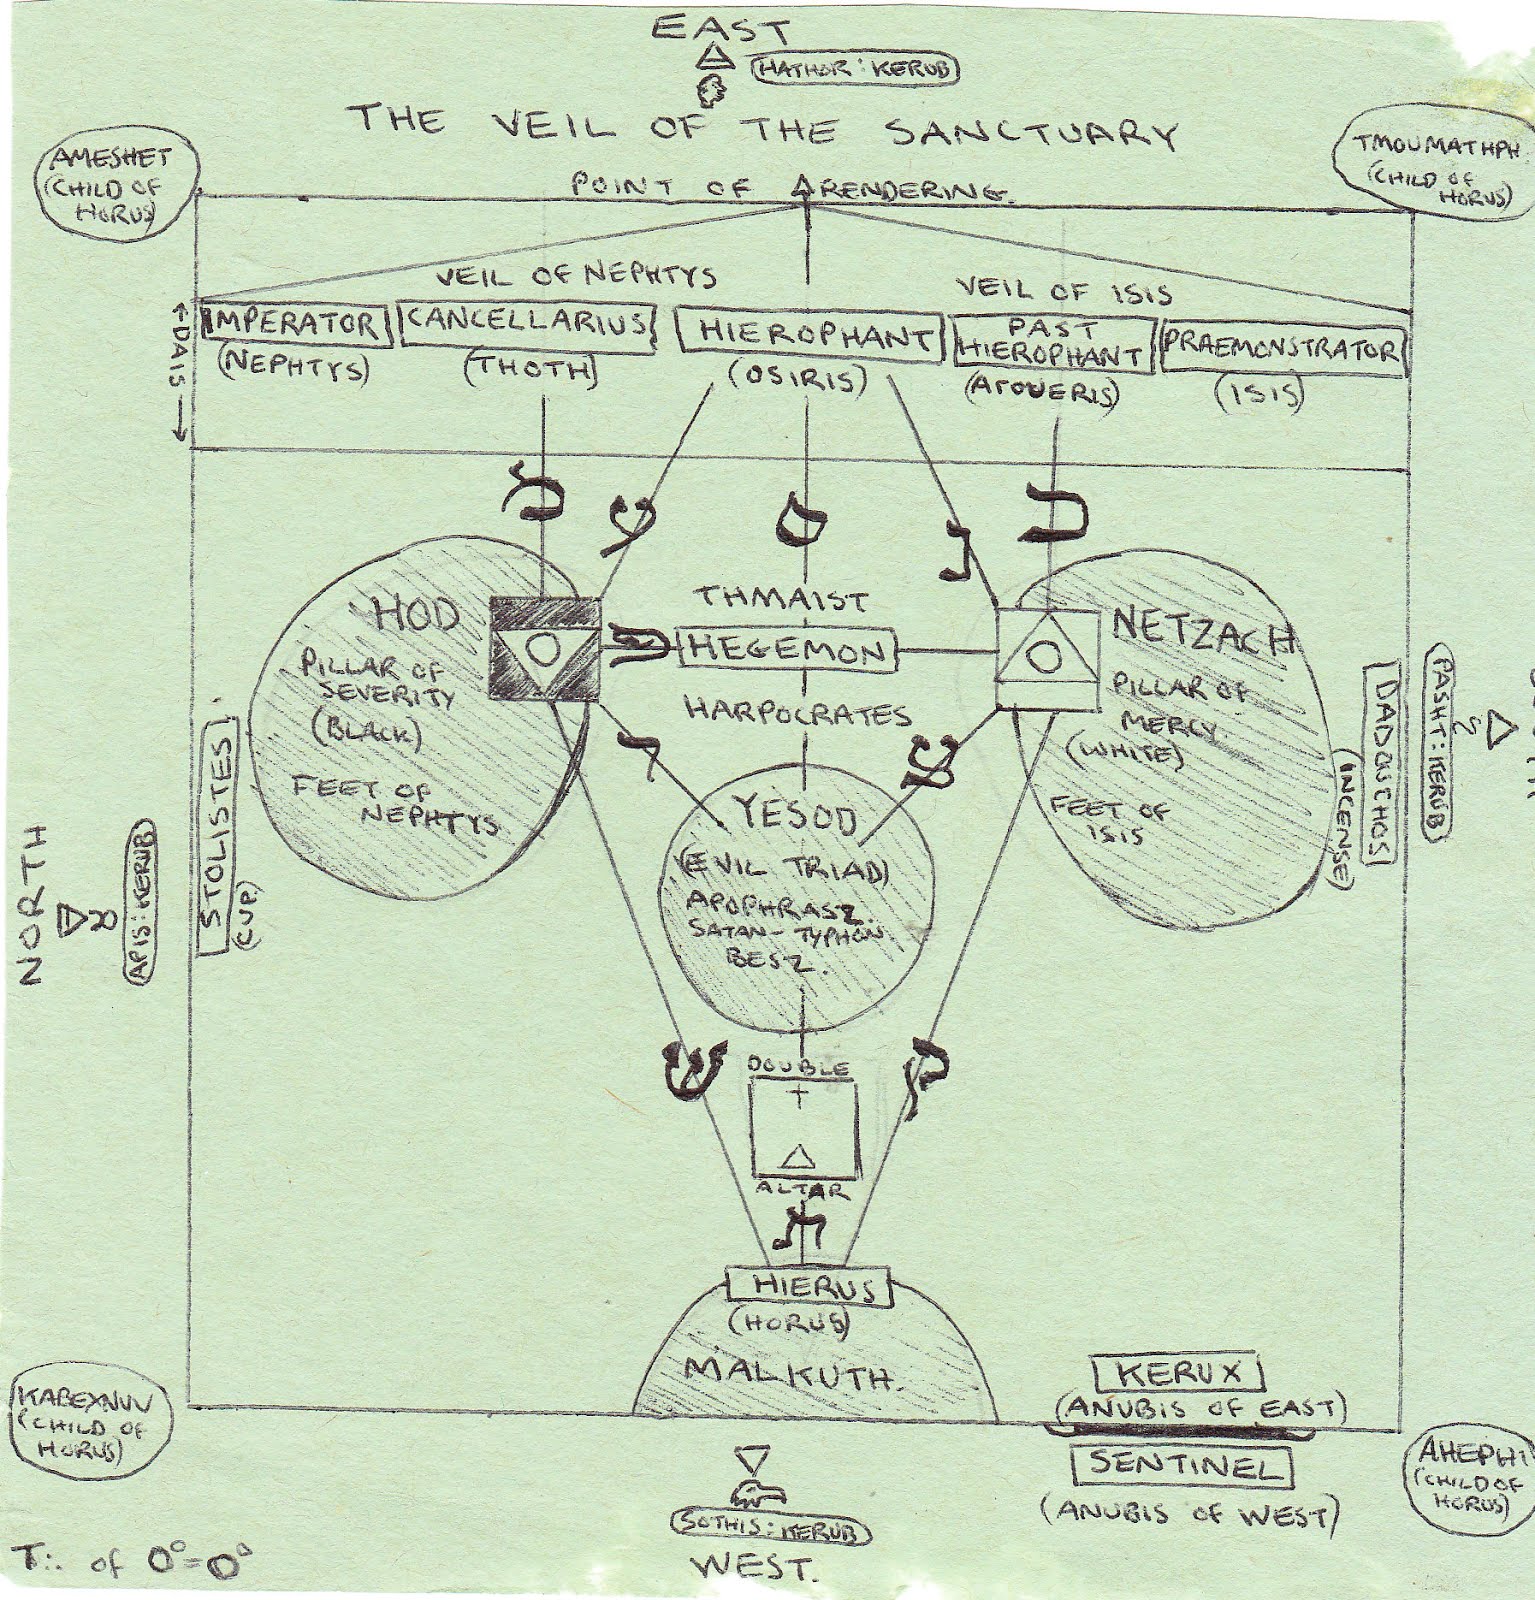 EAST
HATHOR : KERUB
THE VEIL OF THE SANCTUARY
AMESHET
(CHILD OF
HORUS)
TMOUMATHPH
(CHILD OF
HORUS)
POINT OF RENDERING.
VEIL OF NEPHTYS
VEIL OF ISIS
←DAIS→
IMPERATOR
(NEPHTYS)
CANCELLARIUS
(THOTH)
HIEROPHANT
(OSIRIS)
PAST
HIEROPHANT
(AROUERIS)
PRAEMONSTRATOR
(ISIS)
מ ע ס נ כ
HOD
PILLAR OF
SEVERITY
(BLACK)
FEET OF
NEPHTYS
THMAIST
פ
HEGEMON
HARPOCRATES
NETZACH
PILLAR OF
MERCY
(WHITE)
FEET OF
ISIS
ר
צ
YESOD
(EVIL TRIAD)
APOPHRASZ.
SATAN-TYPHON.
BESZ.
NORTH
APIS : KERUB
STOLISTES
(CUP.)
DADOUCHOS
(INCENSE)
PASHT : KERUB
ש
ק
DOUBLE
ALTAR
ת
HIERUS
(HORUS)
MALKUTH.
KERUX
(ANUBIS OF EAST)
SENTINEL
(ANUBIS OF WEST)
KABEXNUV
(CHILD OF
HORUS)
AHEPHI
(CHILD OF
HORUS)
SOTHIS : KERUB
WEST.
T∴ of 0°=0°